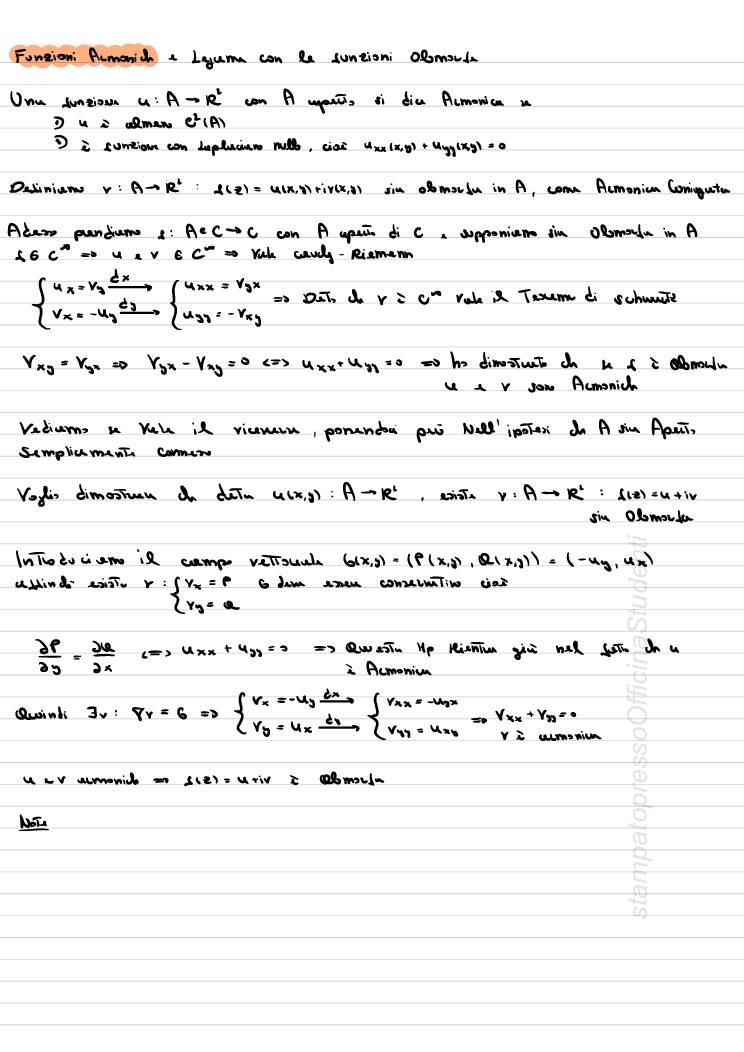 Funzioni Armonich e Legame con le funzioni Olomorfe
Una funzione u : A → R² con A aperto si dice Armonica se
1) u è almeno C²(A)
2) è funzione con laplaciano nullo, cioè u_xx(x,y) + u_yy(x,y) = 0
Definiamo v : A → R² : f(z) = u(x,y) + iv(x,y) sia olomorfa in A, come Armonica Coniugata
Adesso prendiamo f : A ⊂ C → C con A aperto di C e supponiamo sia Olomorfa in A
f ∈ C^∞ => u e v ∈ C^∞ => Vale Cauchy-Riemann
{ u_x = v_y dx→ { u_xx = v_yx
{ v_x = -u_y dy→ { u_yy = -v_xy => Dato ch v è C^∞ vale il Teorema di schwartz
V_xy = V_yx => V_yx - V_xy = 0 <=> u_xx + u_yy = 0 => ho dimostrato ch se f è Olomorfa
u e v sono Armonich
Vediamo se vale il viceversa, ponendoci però Nell'ipotesi ch A sia Aperto
semplicemente connesso
Voglio dimostrare ch data u(x,y) : A → R², esiste v : A → R² : f(z) = u + iv
sia Olomorfa
Introduciamo il campo vettoriale G(x,y) = (P(x,y), Q(x,y)) = (-u_y, u_x)
affinché esista v : { v_x = P G deve essere conservativo cioè
{ v_y = Q
∂P/∂y = ∂Q/∂x <=> u_xx + u_yy = 0 => Questa Hp Rientra già nel fatto ch u
è Armonica
Quindi ∃v : ∇v = G => { v_x = -u_y dx→ { v_xx = -u_yx
{ v_y = u_x dy→ { v_yy = u_xy => V_xx + V_yy = 0
v è armonica
u e v armonich => f(z) = u + iv è Olomorfa
Note
stampatopressoOfficinaStudenti